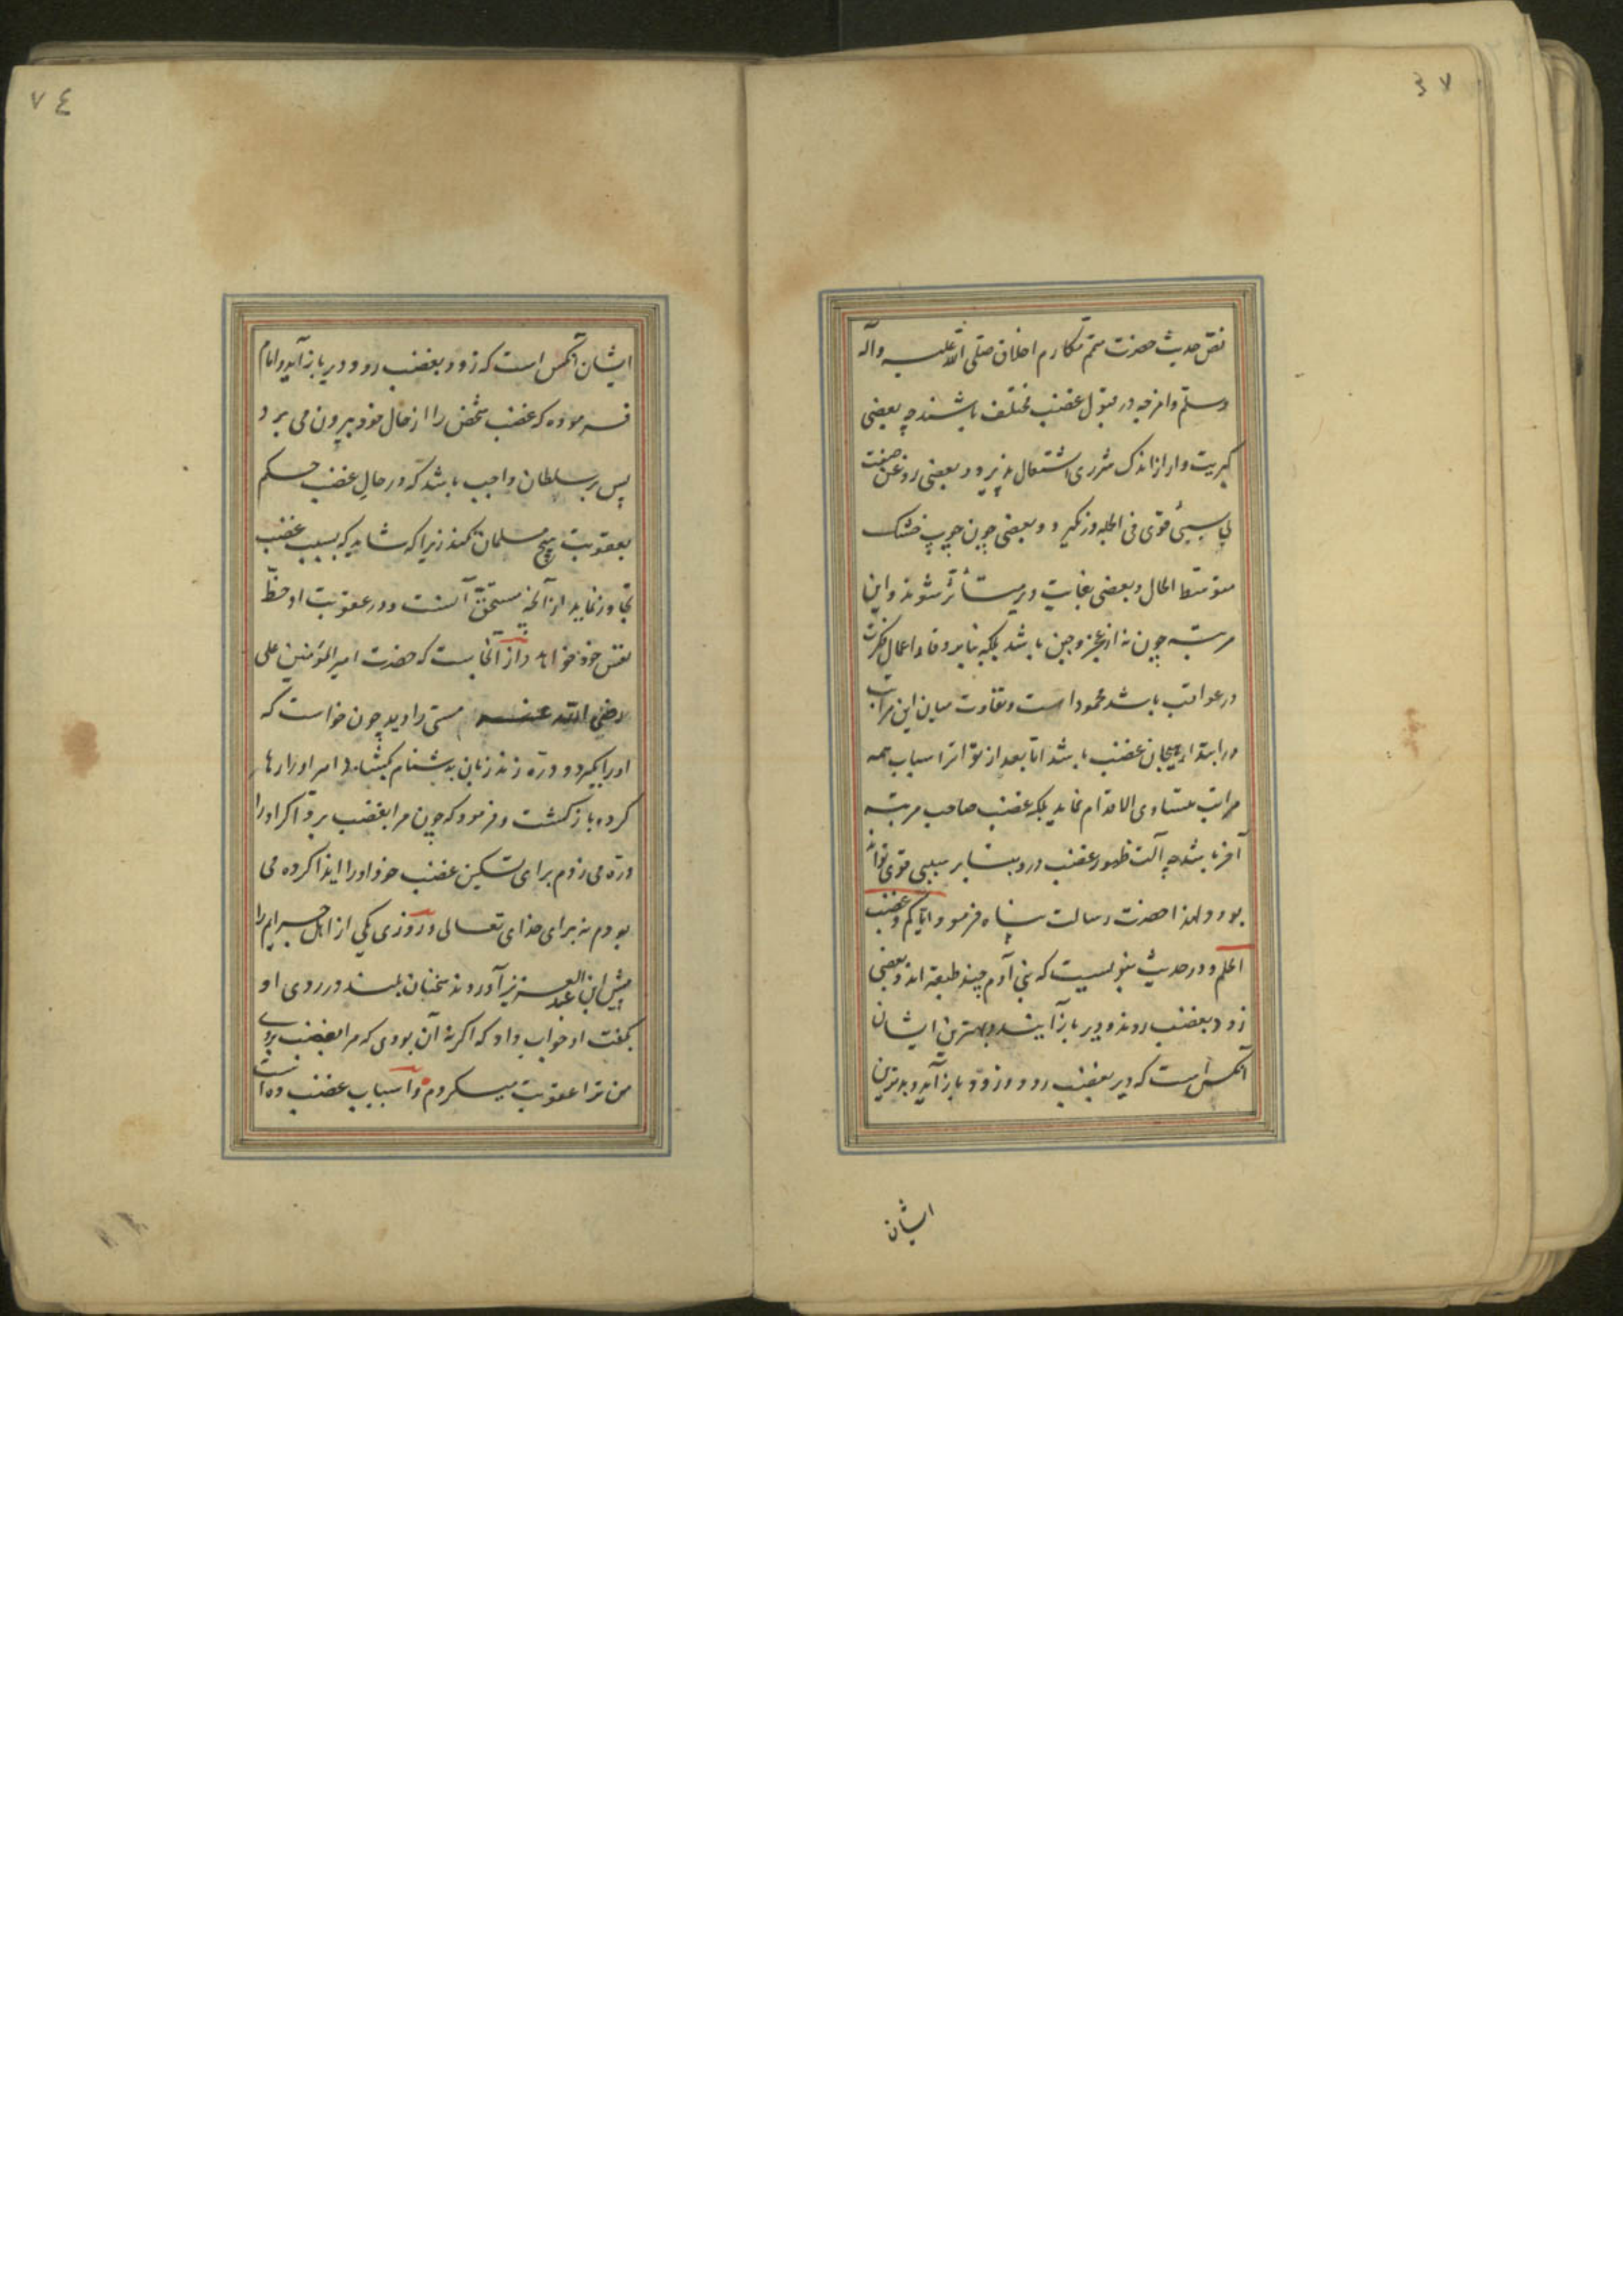 ۷۳
نص حدیث حضرت متمم مکارم اخلاق صلی الله علیه وآله
وسلم وامزجه در قبول غضب مختلف باشند چه بعضی
کبریت وار از اندک شرری اشتعال پذیرد و بعضی روغن صفت
بی سببی قوی فی الجمله در نگیرد و بعضی چون چوب خشک
متوسط الحال و بعضی بغایت دیر متأثر شوند و این
مرتبه چون نه از عجز و جبن باشد بلکه بنابر وقار و اعمال فکرت
در عواقب باشد محمود است و تفاوت میان این مراتب
در ابتداء هیجان غضب باشد اما بعد از تواتر اسباب همه
مراتب متساوی الاقدام نماید بلکه غضب صاحب مرتبه
آخر باشد چه آلت ظهور غضب درو بنابر سببی قوی تواند
بود و لهذا حضرت رسالت پناه فرمود ایاکم و غضب
الحلم و در حدیث نبویست که بنی آدم چند طبقه اند و بعضی
زود بغضب روند و دیر باز آیند و بهترین ایشان
آنکس است که دیر بغضب رود و زود باز آید و بدترین
ایشان
۷٤
ایشان آنکس است که زود بغضب رود و دیر باز آید و امام
فرموده که غضب شخص را از حال خود بیرون می برد
پس بر سلطان واجب باشد که در حال غضب حکم
بعقوبت هیچ مسلمان نکند زیرا که شاید که بسبب غضب
تجاوز نماید از آنچه مستحق آنست و در عقوبت او حظ
نفس خود خواهد و از آنجاست که حضرت امیر المؤمنین علی
رضی الله عنه مستی را دید چون خواست که
او را بگیرد و دره زند زبان بدشنام بگشاد امیر او را رها
کرده باز گشت و فرمود که چون مرا بغضب برد اگر او را
دره می زدم برای تسکین غضب خود او را ایذا کرده می
بودم نه برای خدای تعالی و روزی یکی از اهل جرایم را
پیش ابن عبد العزیز آوردند سخنان بلند در روی او
بگفت او جواب داد که اگر نه آن بودی که مرا بغضب بردی
من ترا عقوبت میکردم و اسباب غضب ده است